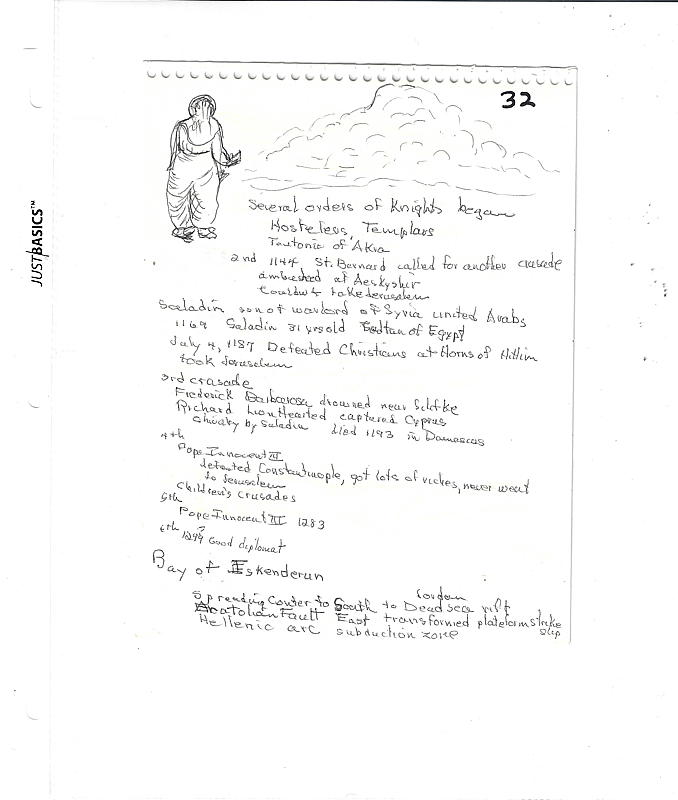 JUSTBASICS™
32
Several orders of Knights began
Hostelers, Templars
Teutonic of Akra
2nd 1144 St. Bernard called for another crusade
ambushed at Aeskyshir
Couldn't take Jerusalem
Saladin son of warlord of Syria united Arabs
1169 Saladin 31 yrs old Sultan of Egypt
July 4, 1187 Defeated Christians at Horns of Hittim
took Jerusalem
3rd crusade
Frederick Barbarosa drowned near Silifke
Richard Lionhearted captured Cyprus
chivalry by Saladin died 1193 in Damascus
4th
Pope Innocent III
defeated Constantinople, got lots of riches, never went
to Jerusalem
Children's Crusades
5th
Pope Innocent III 1283
6th 1244? Good diplomat
Bay of Iskenderun
Spreading Center to South to Dead sea rift
Jordan
Anatolian Fault East transformed plateform strike
slip
Hellenic arc subduction zone